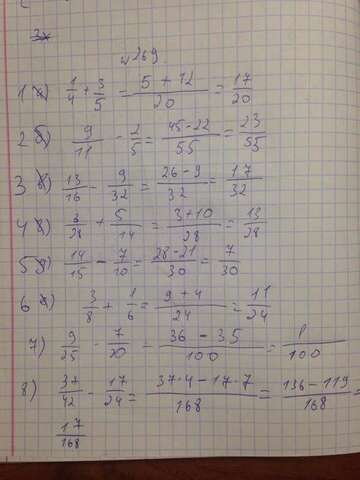 №269
1) 1/4 + 3/5 = 5 + 12/20 = 17/20
2) 9/11 - 2/5 = 45-22/55 = 23/55
3) 13/16 - 9/32 = 26-9/32 = 17/32
4) 3/28 + 5/14 = 3+10/28 = 13/28
5) 14/15 - 7/10 = 28-21/30 = 7/30
6) 3/8 + 1/6 = 9+4/24 = 11/24
7) 9/25 - 7/20 = 36 - 35/100 = 1/100
8) 37/42 - 17/24 = 37·4-17·7/168 = 136-119/168 =
17/168